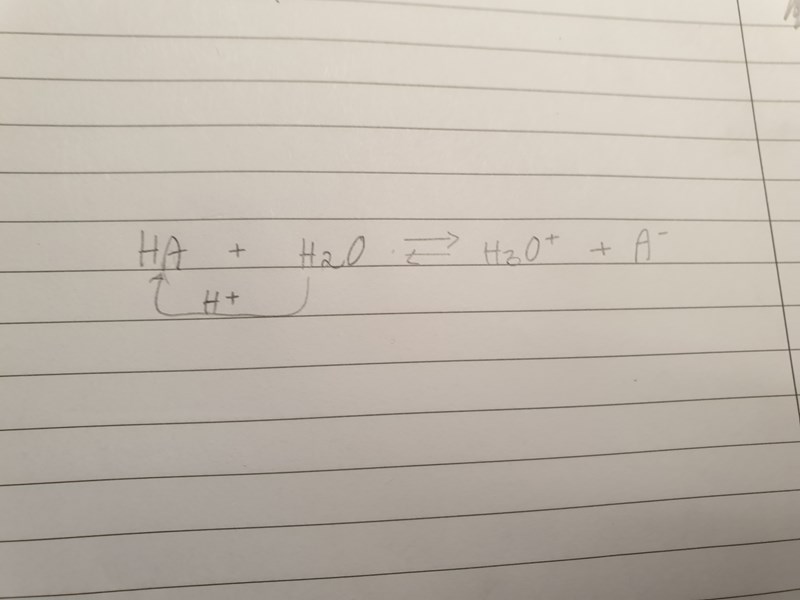 HA + H₂O ⇌ H₃O⁺ + A⁻
H⁺